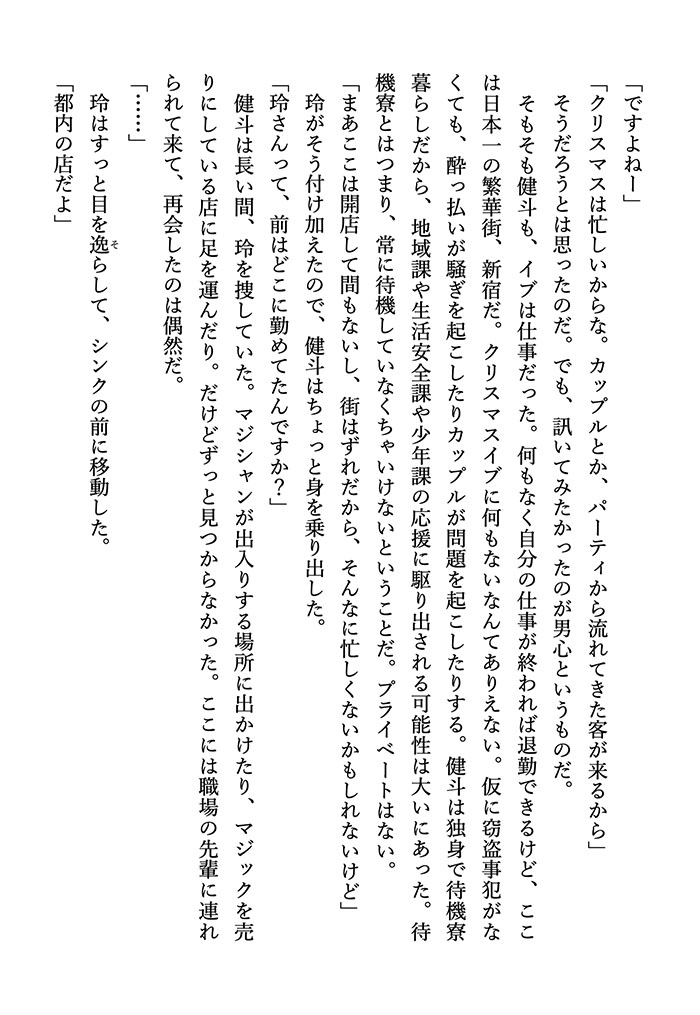 「ですよねー」
「クリスマスは忙しいからな。カップルとか、パーティから流れてきた客が来るから」
そうだろうとは思ったのだ。でも、訊いてみたかったのが男心というものだ。
そもそも健斗も、イブは仕事だった。何もなく自分の仕事が終われば退勤できるけど、ここ
は日本一の繁華街、新宿だ。クリスマスイブに何もないなんてありえない。仮に窃盗事犯がな
くても、酔っ払いが騒ぎを起こしたりカップルが問題を起こしたりする。健斗は独身で待機寮
暮らしだから、地域課や生活安全課や少年課の応援に駆り出される可能性は大いにあった。待
機寮とはつまり、常に待機していなくちゃいけないということだ。プライベートはない。
「まあここは開店して間もないし、街はずれだから、そんなに忙しくないかもしれないけど」
玲がそう付け加えたので、健斗はちょっと身を乗り出した。
「玲さんって、前はどこに勤めてたんですか？」
健斗は長い間、玲を捜していた。マジシャンが出入りする場所に出かけたり、マジックを売
りにしている店に足を運んだり。だけどずっと見つからなかった。ここには職場の先輩に連れ
られて来て、再会したのは偶然だ。
「……」
玲はすっと目を逸そらして、シンクの前に移動した。
「都内の店だよ」